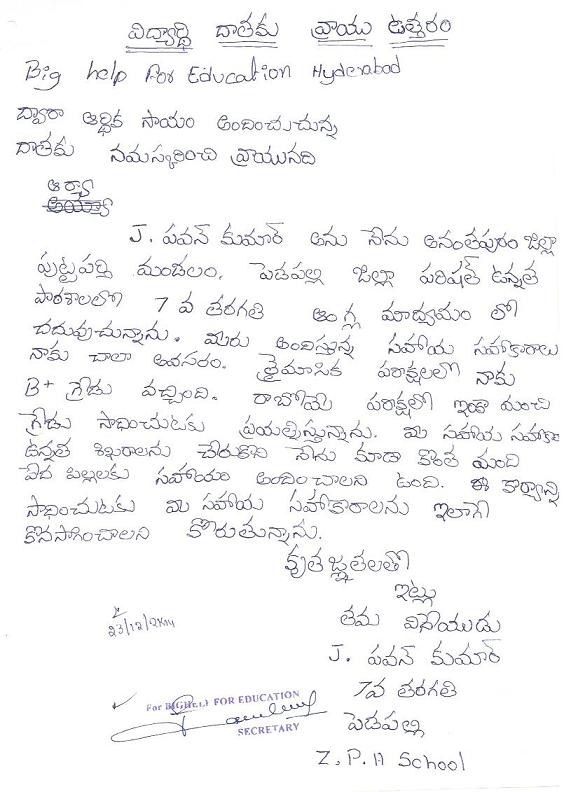 విద్యార్థి దాతకు వ్రాయు ఉత్తరం
Big help For Education Hyderabad
ద్వారా ఆర్థిక సాయం అందించుచున్న
దాతకు నమస్కరించి వ్రాయునది
ఆర్యా
అయ్యా
J. పవన్ కుమార్ అను నేను అనంతపురం జిల్లా
పుట్టపర్తి మండలం, పెడపల్లి జిల్లా పరిషత్ ఉన్నత
పాఠశాలలో 7 వ తరగతి ఆంగ్ల మాధ్యమం లో
చదువుచున్నాను. మీరు అందిస్తున్న సహాయ సహాకారాలు
నాకు చాలా అవసరం. త్రైమాసిక పరీక్షలలో నాకు
B+ గ్రేడు వచ్చింది. రాబోయే పరీక్షలో ఇంకా మంచి
గ్రేడు సాధించుటకు ప్రయత్నిస్తున్నాను. మీ సహాయ సహాకా
ఉన్నత శిఖరాలను చేరుకుని నేను కూడా కొంత మంది
పేద పిల్లలకు సహాయం అందించాలని ఉంది. ఈ కార్యాన్ని
సాధించుటకు మీ సహాయ సహాకారాలను ఇలాగే
కొనసాగించాలని కోరుతున్నాను.
కృతజ్ఞతలతో
ఇట్లు
తమ విధేయుడు
J. పవన్ కుమార్
7వ తరగతి
పెడపల్లి
Z.P.H School
23/12/2014
For BIGHELP FOR EDUCATION
SECRETARY